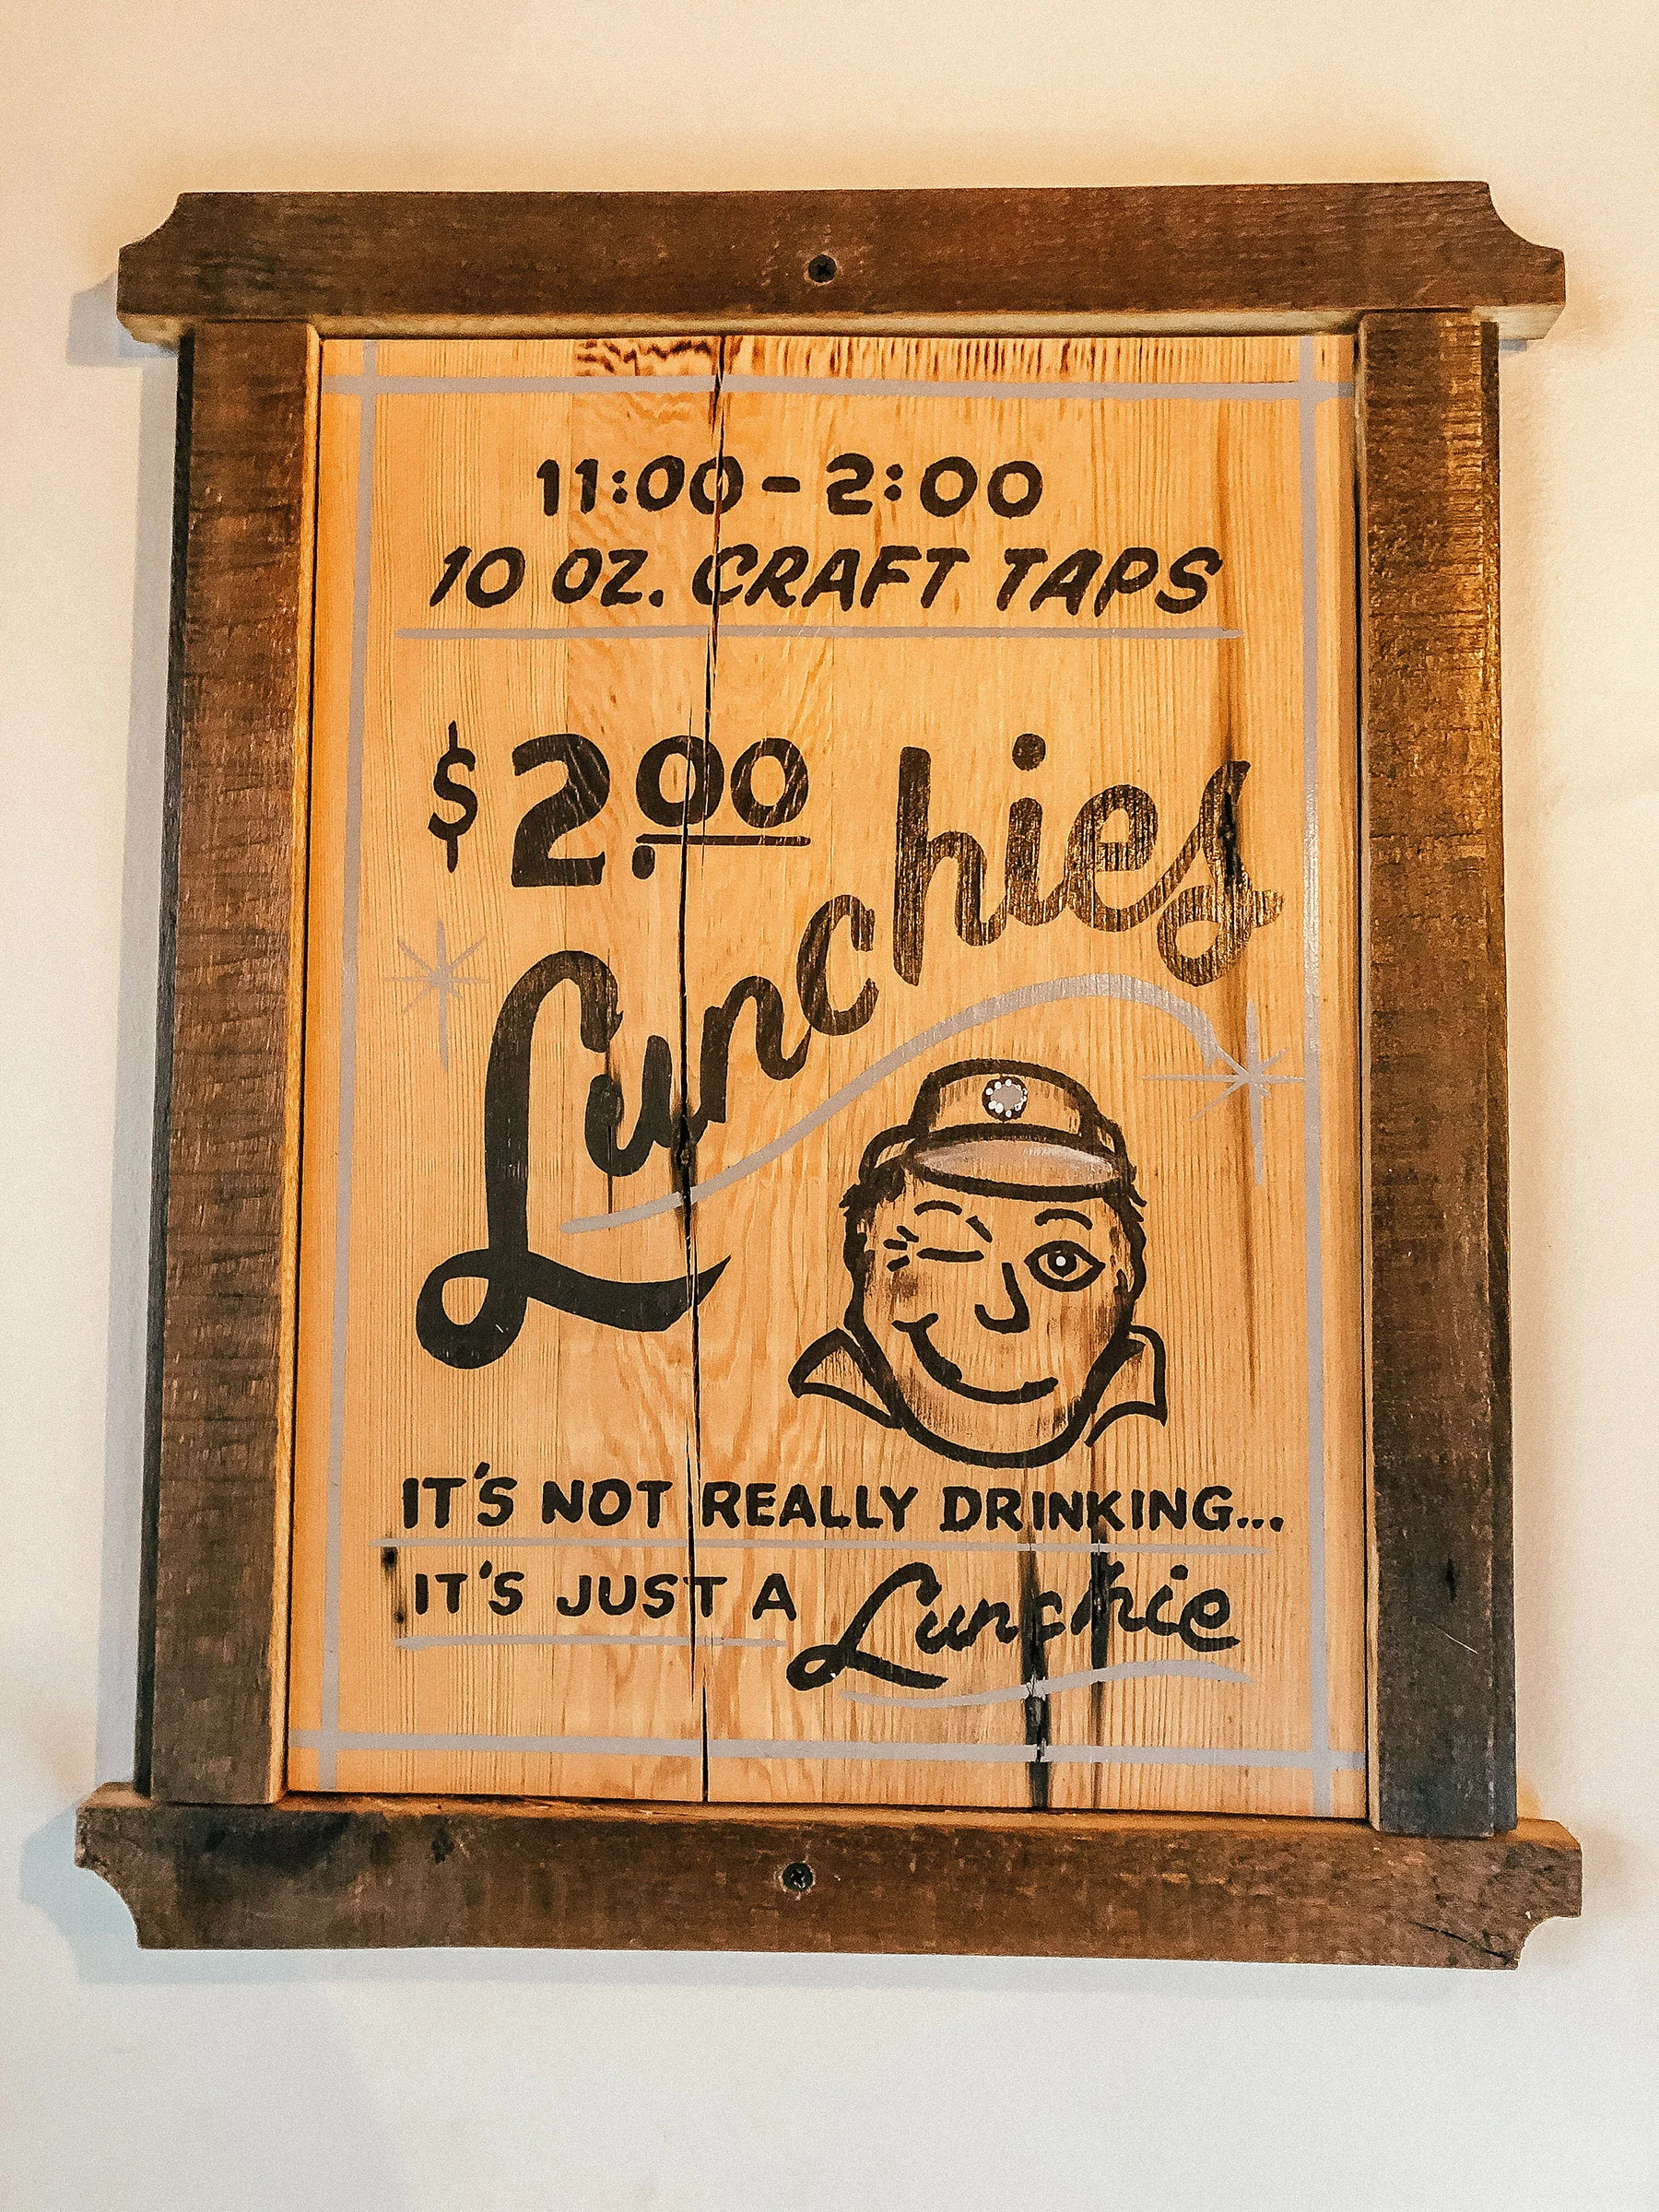 11:00 - 2:00
10 OZ. CRAFT TAPS
$2.00
Lunchies
IT'S NOT REALLY DRINKING...
IT'S JUST A Lunchie